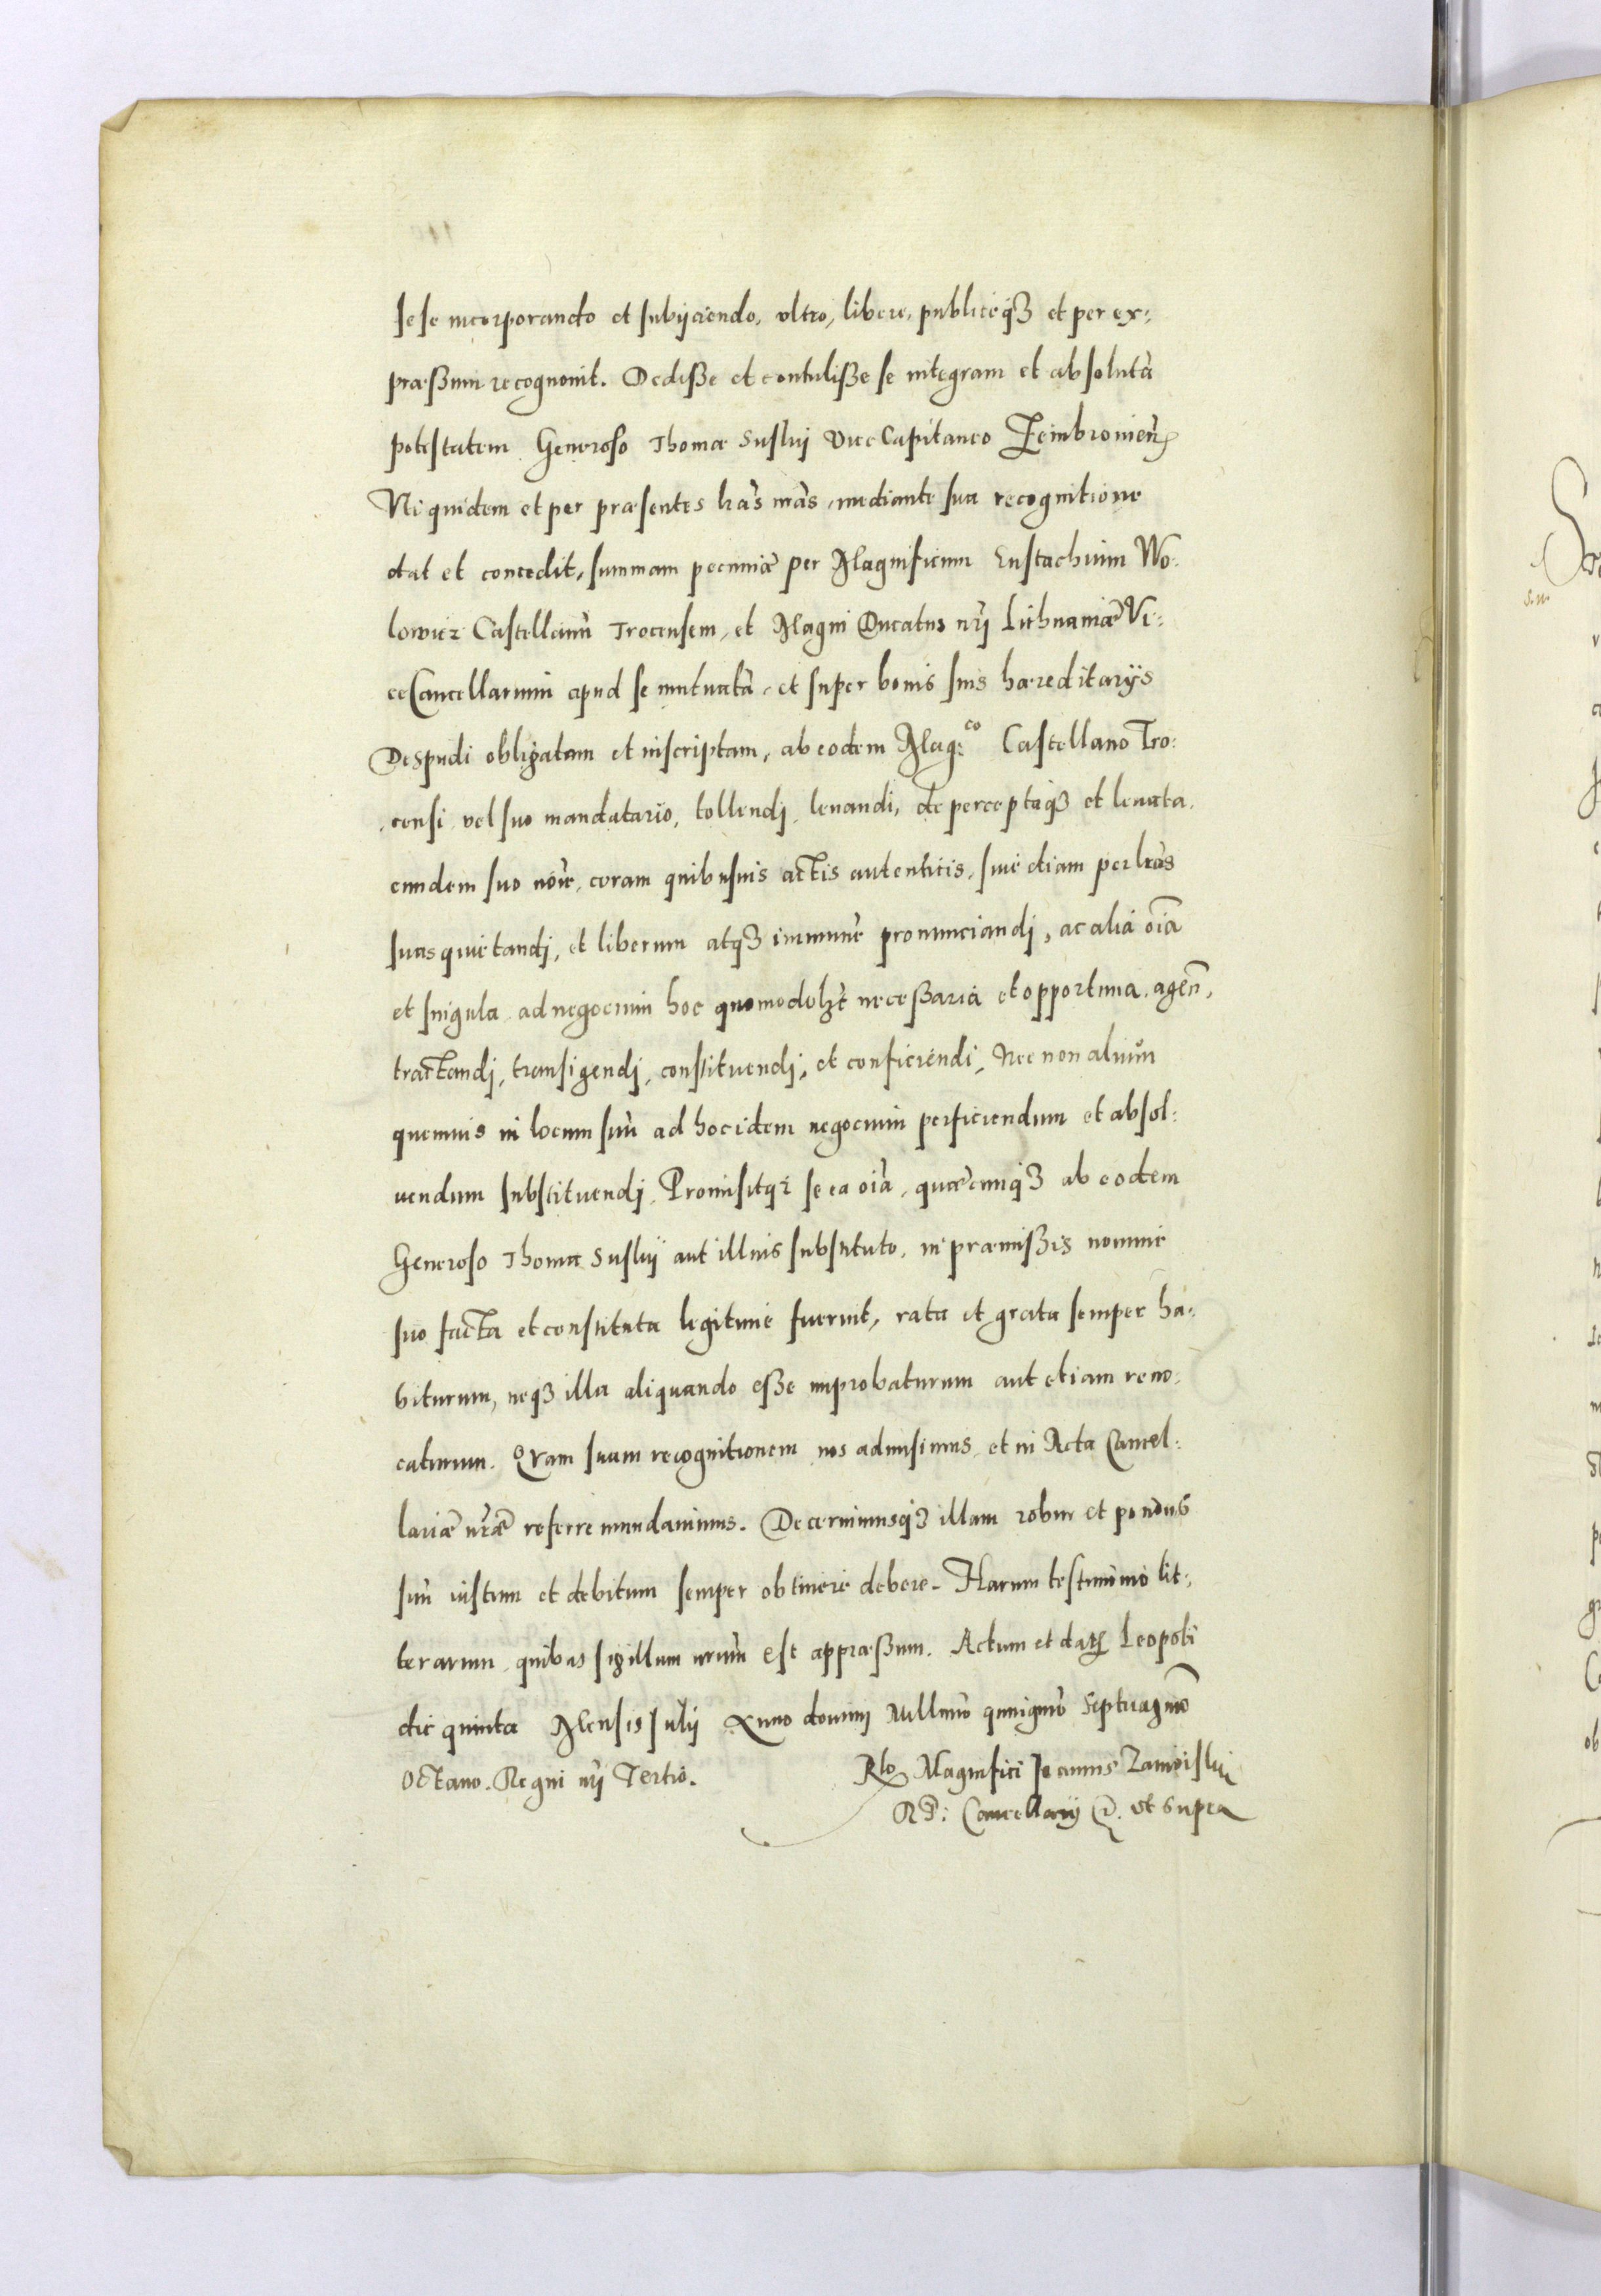 sese incorporando et subijciendo, ultro, libere, publiceq₃ et per ex:
præssum recognovit. Dedisse et contulisse se integram et absolutã
potestatem Generoso Thomæ Suski Vice Capitaneo Zembrouien̄
Uti quidem et per præsentes lr̃as nr̃as, mediante sua recognitione
dat et concedit, summam pecuniæ per Magnificum Eustachium Wo:
lowicz Castellanũ Trocensem, et Magni Ducatus nr̃i Lithuaniæ Vi:
ceCancellarium apud se mutuatã, et super bonis suis hæreditarijs
Despudi obligatam et inscriptam, ab eodem Mag:co Castellano Tro:
censi vel suo mandatario, tollendj, levandi, de perceptaq₃ et levata,
eundem suo noĩe, coram quibusuis actis autenticis, sive etiam per lr̃as
suas quietandj, et liberum atq₃ immunẽ pronunciandj, ac alia oĩa
et singula ad negocium hoc quomodolꝫt necessaria et opportuna, agen̄,
tractandj, transigendj, constituendj, et conficiendi, Nec non aliũm
quemuis in locum suũ ad hoc idem negocium perficiendum et absol:
uendum substituendj. Promisitq₃ se ea oĩa, quæcunq₃ ab eodem
Generoso Thoma Suski aut illius substituto, in præmissis nomine
suo facta et constituta legitime fuerint, rata et grata semper ha:
biturum, neq₃ illa aliquando esse improbaturum aut etiam reuo:
caturum. Qram suam recognitionem nos admisimus et in Acta Cancel:
lariæ nr̃æ referre mandauimus. Decernimusq₃ illam robur et pondus
suũ iustum et debitum semper obtinere debere. Harum testimonio lit:
terarum quibus sigillum nr̃um est appræssum. Actum et datꝫ Leopoli
die quinta Mensis Julij Anno domini Millmõ quingmõ Septuagmõ
Octauo. Regni nr̃i Tertio.
Rlo Magnifici Joannis Zamoiski
R P: Cancellarij &. ut supra